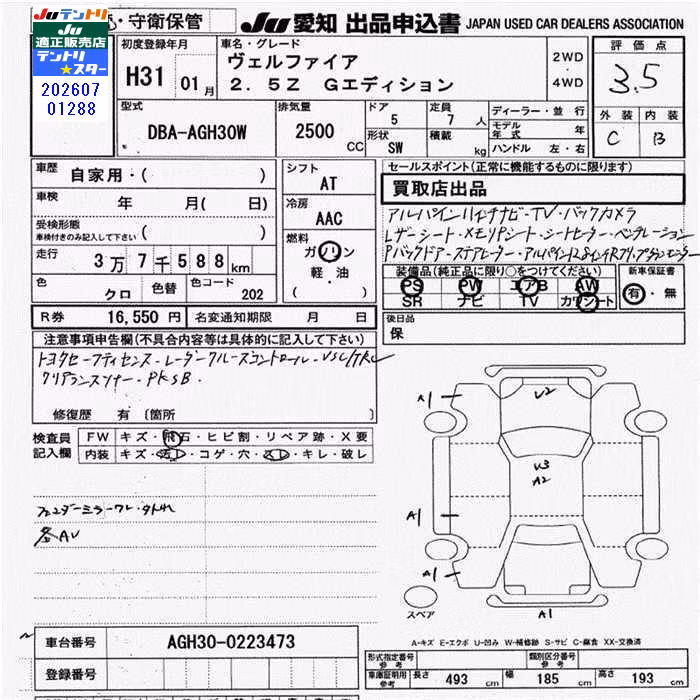 JUテントリ
JU
適正販売店
テントリ
★スター
202607
01288
・守衛保管
JU 愛知 出品申込書 JAPAN USED CAR DEALERS ASSOCIATION
初度登録年月
H31 01 月
車名・グレード
ヴェルファイア
2．5Z Gエディション
2WD
・
4WD
評価点
3.5
外装 内装
C B
型式
DBA-AGH30W
排気量
2500 CC
ドア
5
定員
7 人
形状
SW
積載
kg
ディーラー・並行
モデル年式 年
ハンドル 左・右
車歴
自家用・( )
車検 年 月( 日)
受検形態
車検付きのみ記入して下さい ( )
走行
3万7千588km
色
クロ
色替
色コード
202
シフト
AT
冷房
AAC
燃料
ガソリン
軽・油
( )
セールスポイント(正常に機能するものに限ります)
買取店出品
アルパインハイチナビ・TV・バックカメラ
レザーシート・メモリPシート・シートヒーター・ベンチレーション
装備品(純正品に限り○をつけてください)
PS PW エアB AW
SR ナビ TV カワシート
新車保証書
有・無
R券 16,550 円
名変通知期限 月 日
後日品
保
注意事項申告欄(不具合内容等は具体的に記入して下さい)
トヨタセーフティセンス・レーダークルーズコントロール・VSC/TRC
クリアランスソナー・PKSB・
修復歴 有 〔箇所 〕
検査員
記入欄
FW キズ・飛石・ヒビ割・リペア跡・X要
内装 キズ・汚レ・コゲ・穴・スレ・キレ・破レ
フェンダーミラーワレ・タトれ
各AU
A1
U2
U3
A2
A1
A1
A1
スペア
A-キズ E-エクボ U-凹み W-補修跡 S-サビ C-腐食 XX-交換済
車台番号 AGH30-0223473
登録番号
形式指定番号
参考
類別区分番号
参考
車庫証明用
参考
長さ 493 cm 幅 185 cm 高さ 193 cm